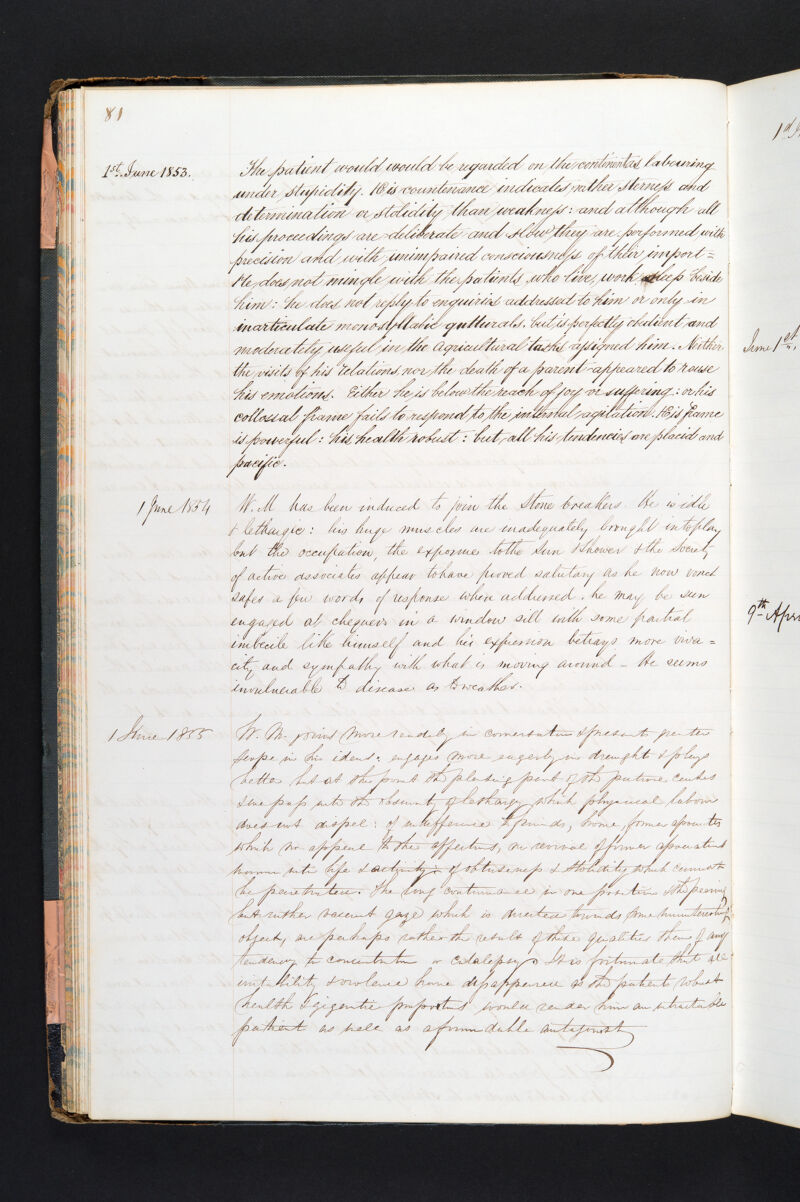 81
1st June 1853.
The patient would would be regarded on the continent as labouring
under stupidity. His countenance indicates rather sterness and
determination or stolidity than weakness: and although all
his proceedings are deliberate and slow they are performed with
precision and with unimpaired consciousness of their import=
He does not mingle with the patients who live, work sleep beside
him: he does not reply to enquiries addressed to him or only in
inarticulate monosyllabic gutturals. but is perfectly obedient and
moderately useful in the agricultural tasks assigned him. Neither
the visits of his relations nor the death of a parent appeared to rouse
his emotions. Either he is below the reach of joy or suffering: or his
collossal frame fails to respond to the internal agitation. His frame
is powerful: his health robust: but all his tendencies are placid and
pacific.
1 June 1854
W. M has been induced to join the stone breakers. He is idle
& lethargic: his huge muscles are inadequately brought into play
but the occupation, the exposure to the sun & shower & the society
of active associates appear to have proved salutary as he now vouch
safes a few words of response when addressed. he may be seen
engaged at chequers in a window sill with some partial
imbecile like himself and his expression betrays more viva=
city and sympathy with what is moving around - He seems
invulnerable to disease as to weather.
1 June 1855
W. M. joins more readily in conversation & presents greater
scope in his ideas: engages more eagerly in draught & plays
better but at this point the pleasing part of the picture ceases
& we pass into the vacuity of lethargy which physical labour
does not dispel: of indifference to friends, home, former
which no appeal to the affections, no revival of former
into life & activity: of obtuseness & stolidity which cannot
be penetrated. The long continuance in one position & the
but rather vacant gaze which is directed towards some uninteresting
object, are perhaps rather the result of these qualities than of any
tendency to concentration or catalepsy. It is fortunate that all
irritability & violence have disappeared as the patients robust
health & gigantic proportions would render him an intractable
patient as well as a formidable antagonist
1st
June 1st
9th April